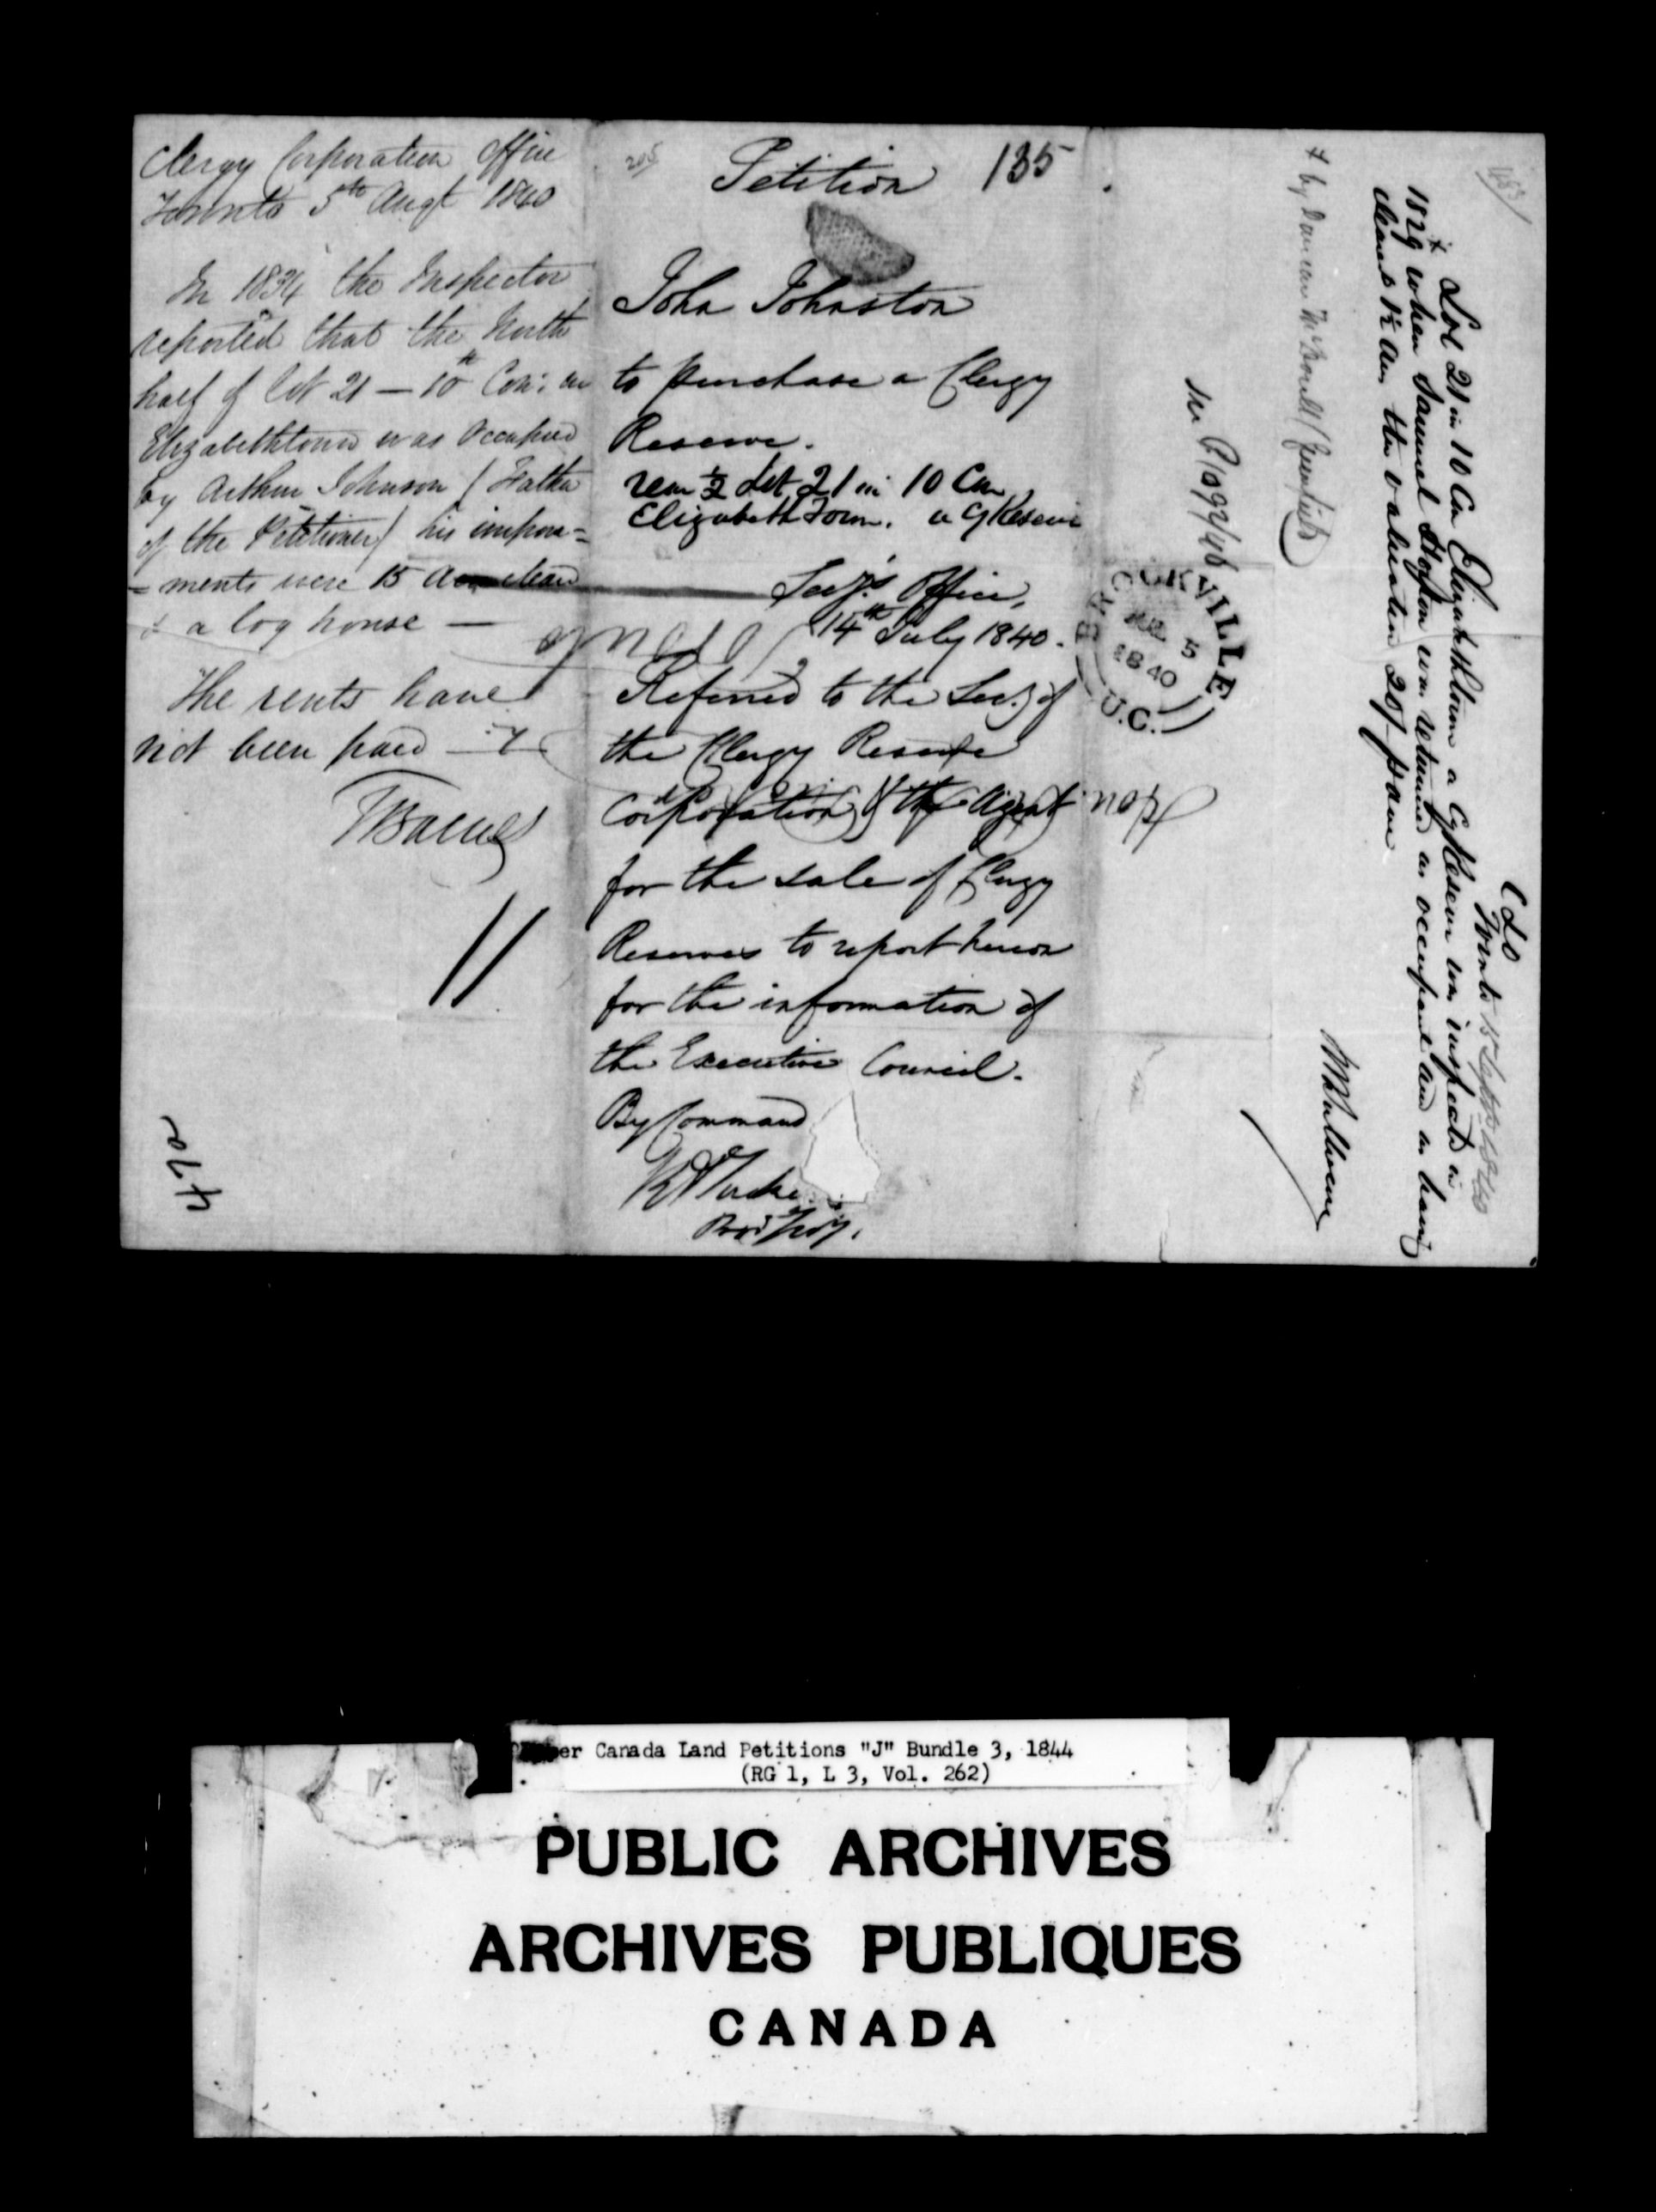 Clergy Corporation Office
Toronto 5th Augt 1840
In 1834 the Inspector
reported that the North
half of lot 21 — 10th Con: in
Elizabethtown was occupied
by Arthur Johnson (Father
of the Petitioner) his improve=
=ments were 15 acres clear
& a log house —
The rents have
not been paid —
470
205
Petition 135
John Johnston
to purchase a Clergy
Reserve.
rear ½ Lot 21 in 10 Con
Elizabeth Town. a Cy Reserve
Secy's Office,
14th July 1840.
Referred to the Secy of
the Clergy Reserve
Corporation & the Agent
for the sale of Clergy
Reserves to report hereon
for the information of
the Executive Council.
By Command
Tucker
BROCKVILLE
5
1840
U.C.
Hon
CLO
Toronto 15 Septr 1840
Lot 21 in 10 Con Elizabethtown a Cy Reserve was inspected in
1829 + when Samuel was returned as occupant and as having
cleared 1½ acres the valuation 20/- p acre
+ by Duncan McDonell (Greenfield)
Upper Canada Land Petitions "J" Bundle 3, 1844
(RG 1, L 3, Vol. 262)
PUBLIC ARCHIVES
ARCHIVES PUBLIQUES
CANADA